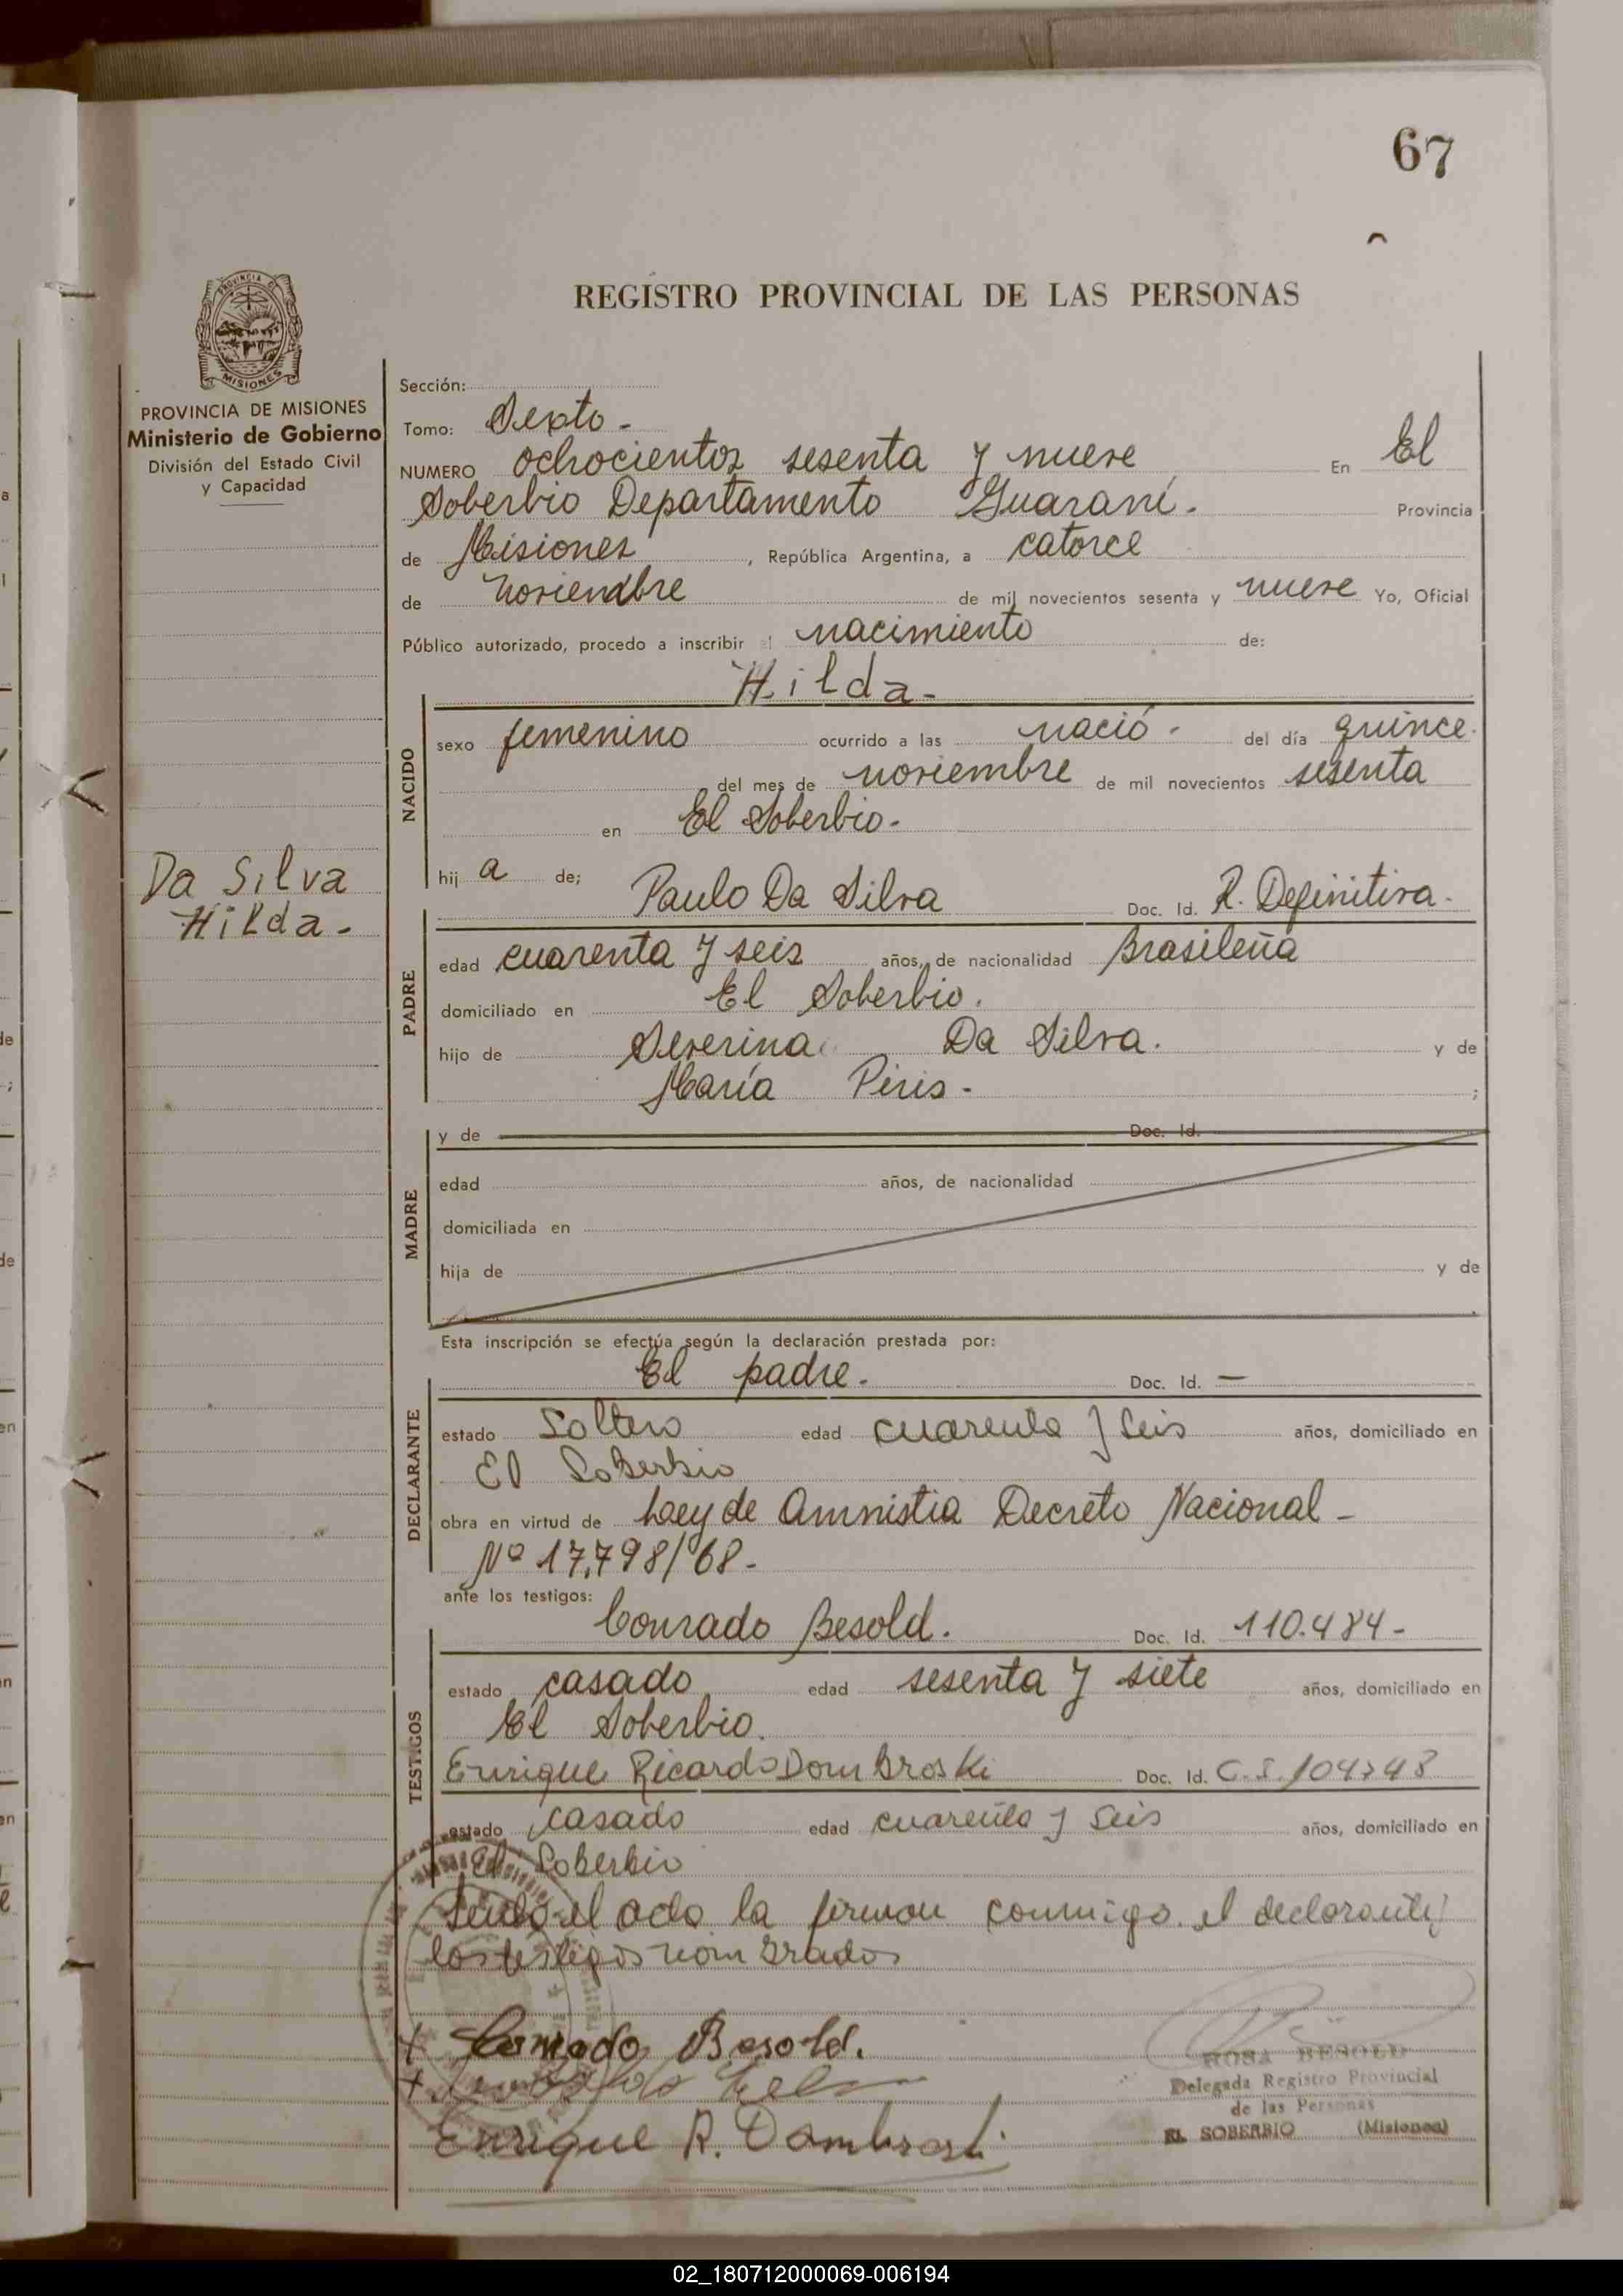 67
REGISTRO PROVINCIAL DE LAS PERSONAS
PROVINCIA DE MISIONES
Ministerio de Gobierno
División del Estado Civil
y Capacidad
Da Silva
Hilda-
Sección:
Tomo: Sexto-
NUMERO ochocientos sesenta y nueve En El
Soberbio Departamento Guaraní. Provincia
de Misiones, República Argentina, a catorce
de noviembre de mil novecientos sesenta y nueve Yo, Oficial
Público autorizado, procedo a inscribir el nacimiento de:
Hilda-
NACIDO
sexo femenino ocurrido a las nació- del día quince.
del mes de noviembre de mil novecientos sesenta
en El Soberbio-
hij a de;
PADRE
Paulo Da Silva Doc. Id. R. Definitiva.
edad cuarenta y seis años, de nacionalidad Brasileña
domiciliado en El Soberbio.
hijo de Severina Da Silva. y de
María Piris- ;
MADRE
y de Doc. Id.
edad años, de nacionalidad
domiciliada en
hija de y de
Esta inscripción se efectúa según la declaración prestada por:
DECLARANTE
El padre. Doc. Id. —
estado Soltero edad cuarenta y seis años, domiciliado en
El Soberbio
obra en virtud de Ley de Amnistia Decreto Nacional-
Nº 17.798/68-
ante los testigos:
TESTIGOS
Conrado Besold. Doc. Id. 110.484-
estado casado edad sesenta y siete años, domiciliado en
El Soberbio.
Enrique Ricardo Dombroski Doc. Id. C.I. 104748
estado casado edad cuarenta y seis años, domiciliado en
El Soberbio
Leida el acta la firman conmigo el declarante y
los testigos nombrados
+ Conrado Besold.
+
Enrique R. Dombroski
ROSA BESOLD
Delegada Registro Provincial
de las Personas
EL SOBERBIO (Misiones)
02_180712000069-006194